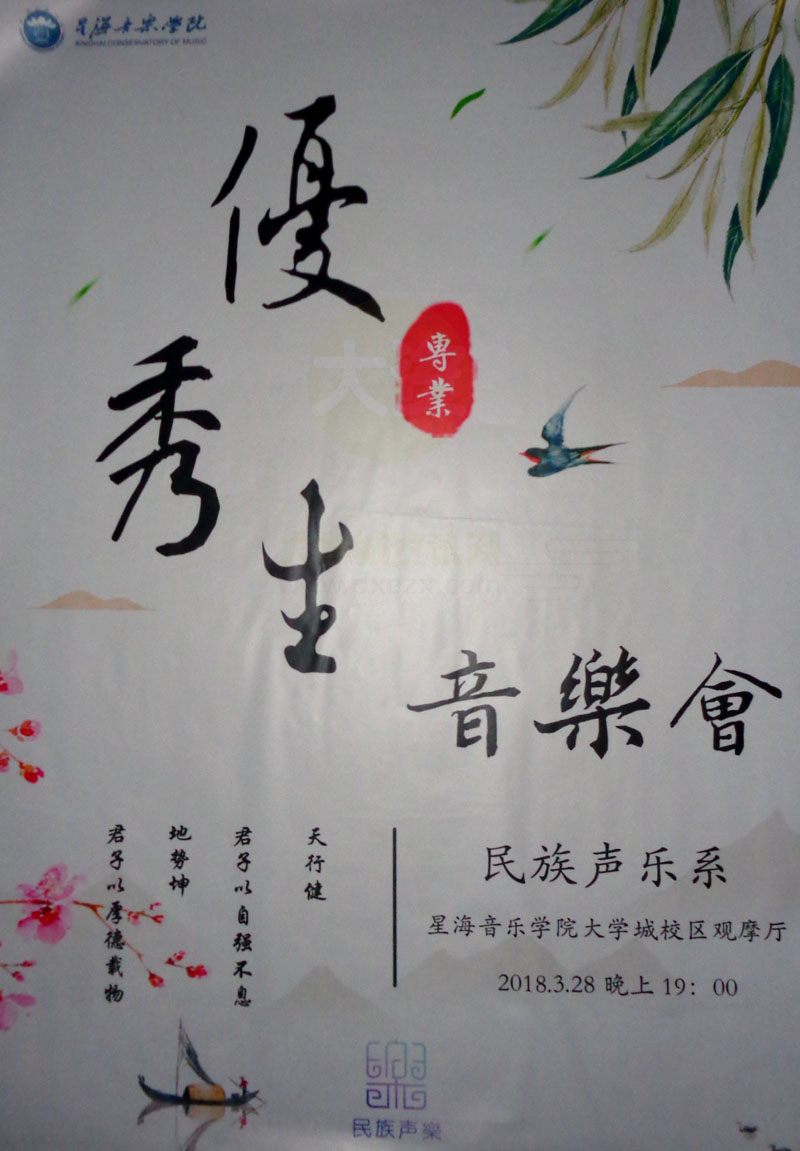 星海音乐学院
XINGHAI CONSERVATORY OF MUSIC
優秀生
專業
音樂會
天行健
君子以自强不息
地势坤
君子以厚德载物
民族声乐系
星海音乐学院大学城校区观摩厅
2018.3.28 晚上 19：00
民族声樂